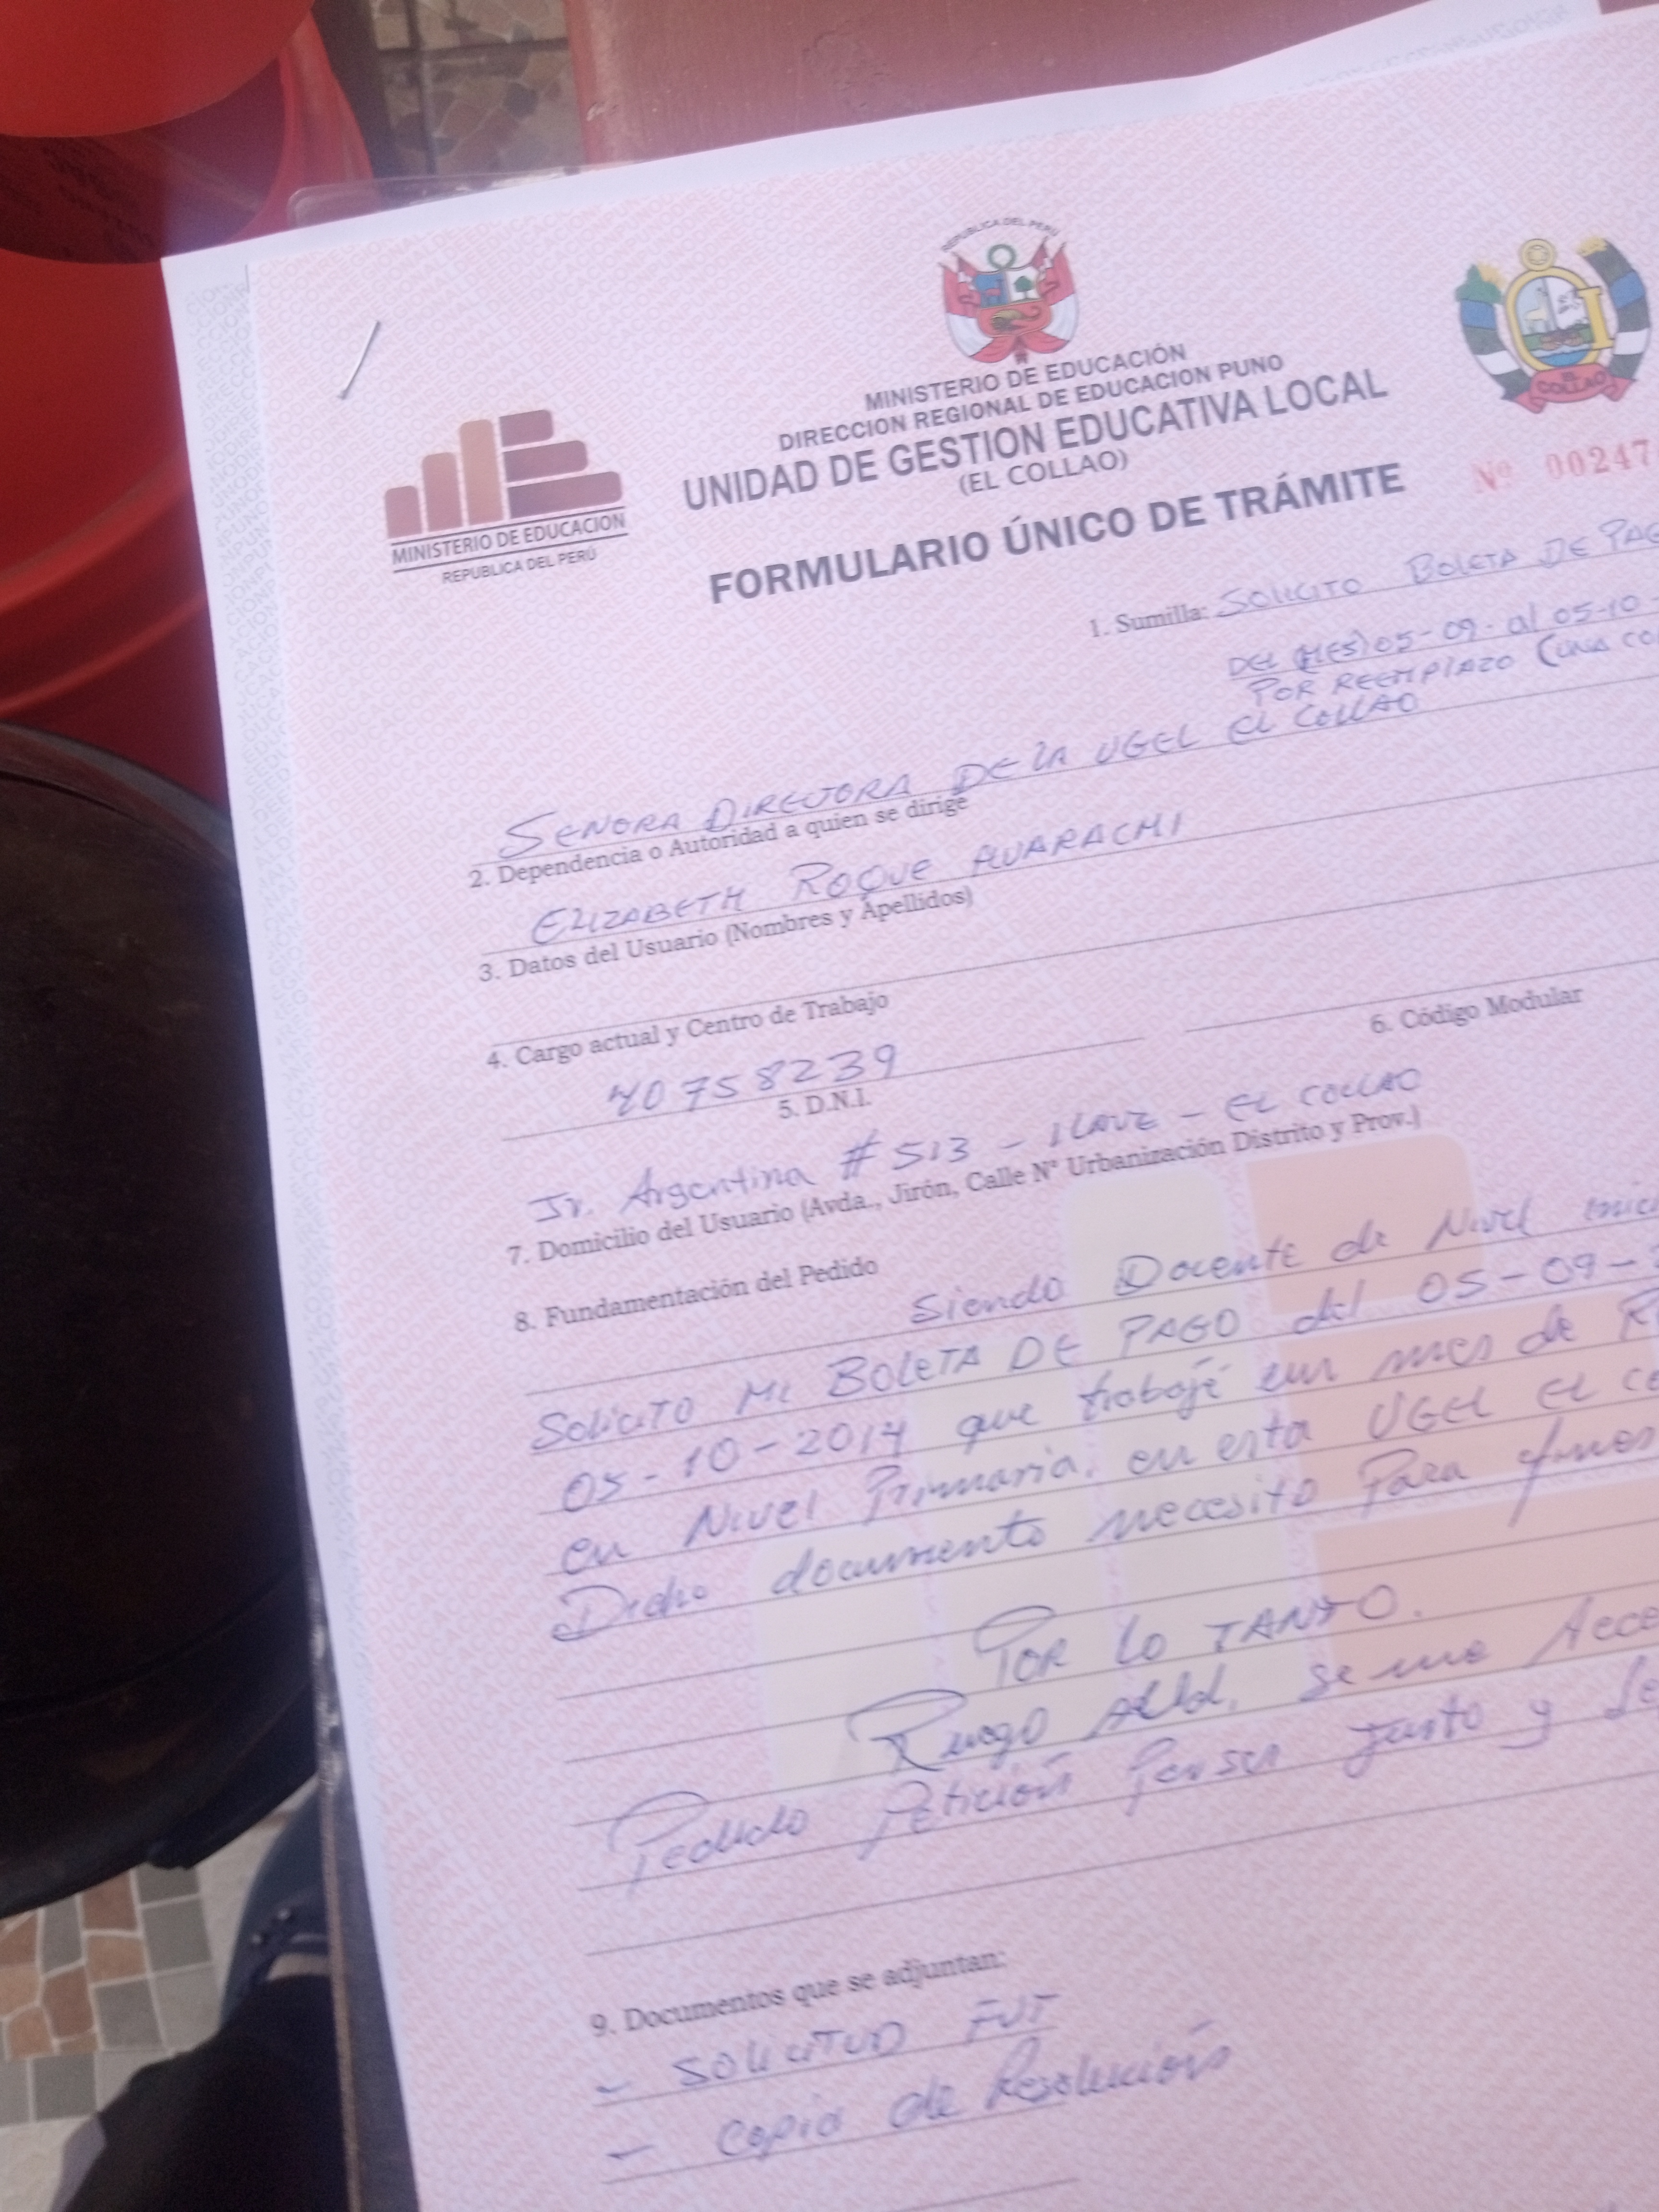 REPUBLICA DEL PERÚ
MINISTERIO DE EDUCACIÓN
DIRECCION REGIONAL DE EDUCACION PUNO
UNIDAD DE GESTION EDUCATIVA LOCAL
(EL COLLAO)
FORMULARIO ÚNICO DE TRÁMITE
COLLAO
Nº 00247
MINISTERIO DE EDUCACION
REPUBLICA DEL PERÚ
1. Sumilla: SOLICITO BOLETA DE PAG
DEL (MES) 05-09- al 05-10-
POR REEMPLAZO (UNA CO
SEÑORA DIRECTORA DE LA UGEL EL COLLAO
2. Dependencia o Autoridad a quien se dirige
ELIZABETH ROQUE HUARACHI
3. Datos del Usuario (Nombres y Apellidos)
4. Cargo actual y Centro de Trabajo
40758239
5. D.N.I.
6. Código Modular
Jr. Argentina # 513 - ILAVE - EL COLLAO
7. Domicilio del Usuario (Avda., Jirón, Calle N° Urbanización Distrito y Prov.)
8. Fundamentación del Pedido
Siendo Docente de Nivel inici
Solicito Mi BOLETA DE PAGO del 05-09-2
05-10-2014 que trabajé un mes de R
en Nivel Primaria, en esta UGEL EL CO
Dicho documento necesito Para fines
POR LO TANTO.
Ruego Ud, se me Acce
Pedido Petición Por ser Justo y Le
9. Documentos que se adjuntan:
- SOLICITUD FUT
- Copia de Resolución